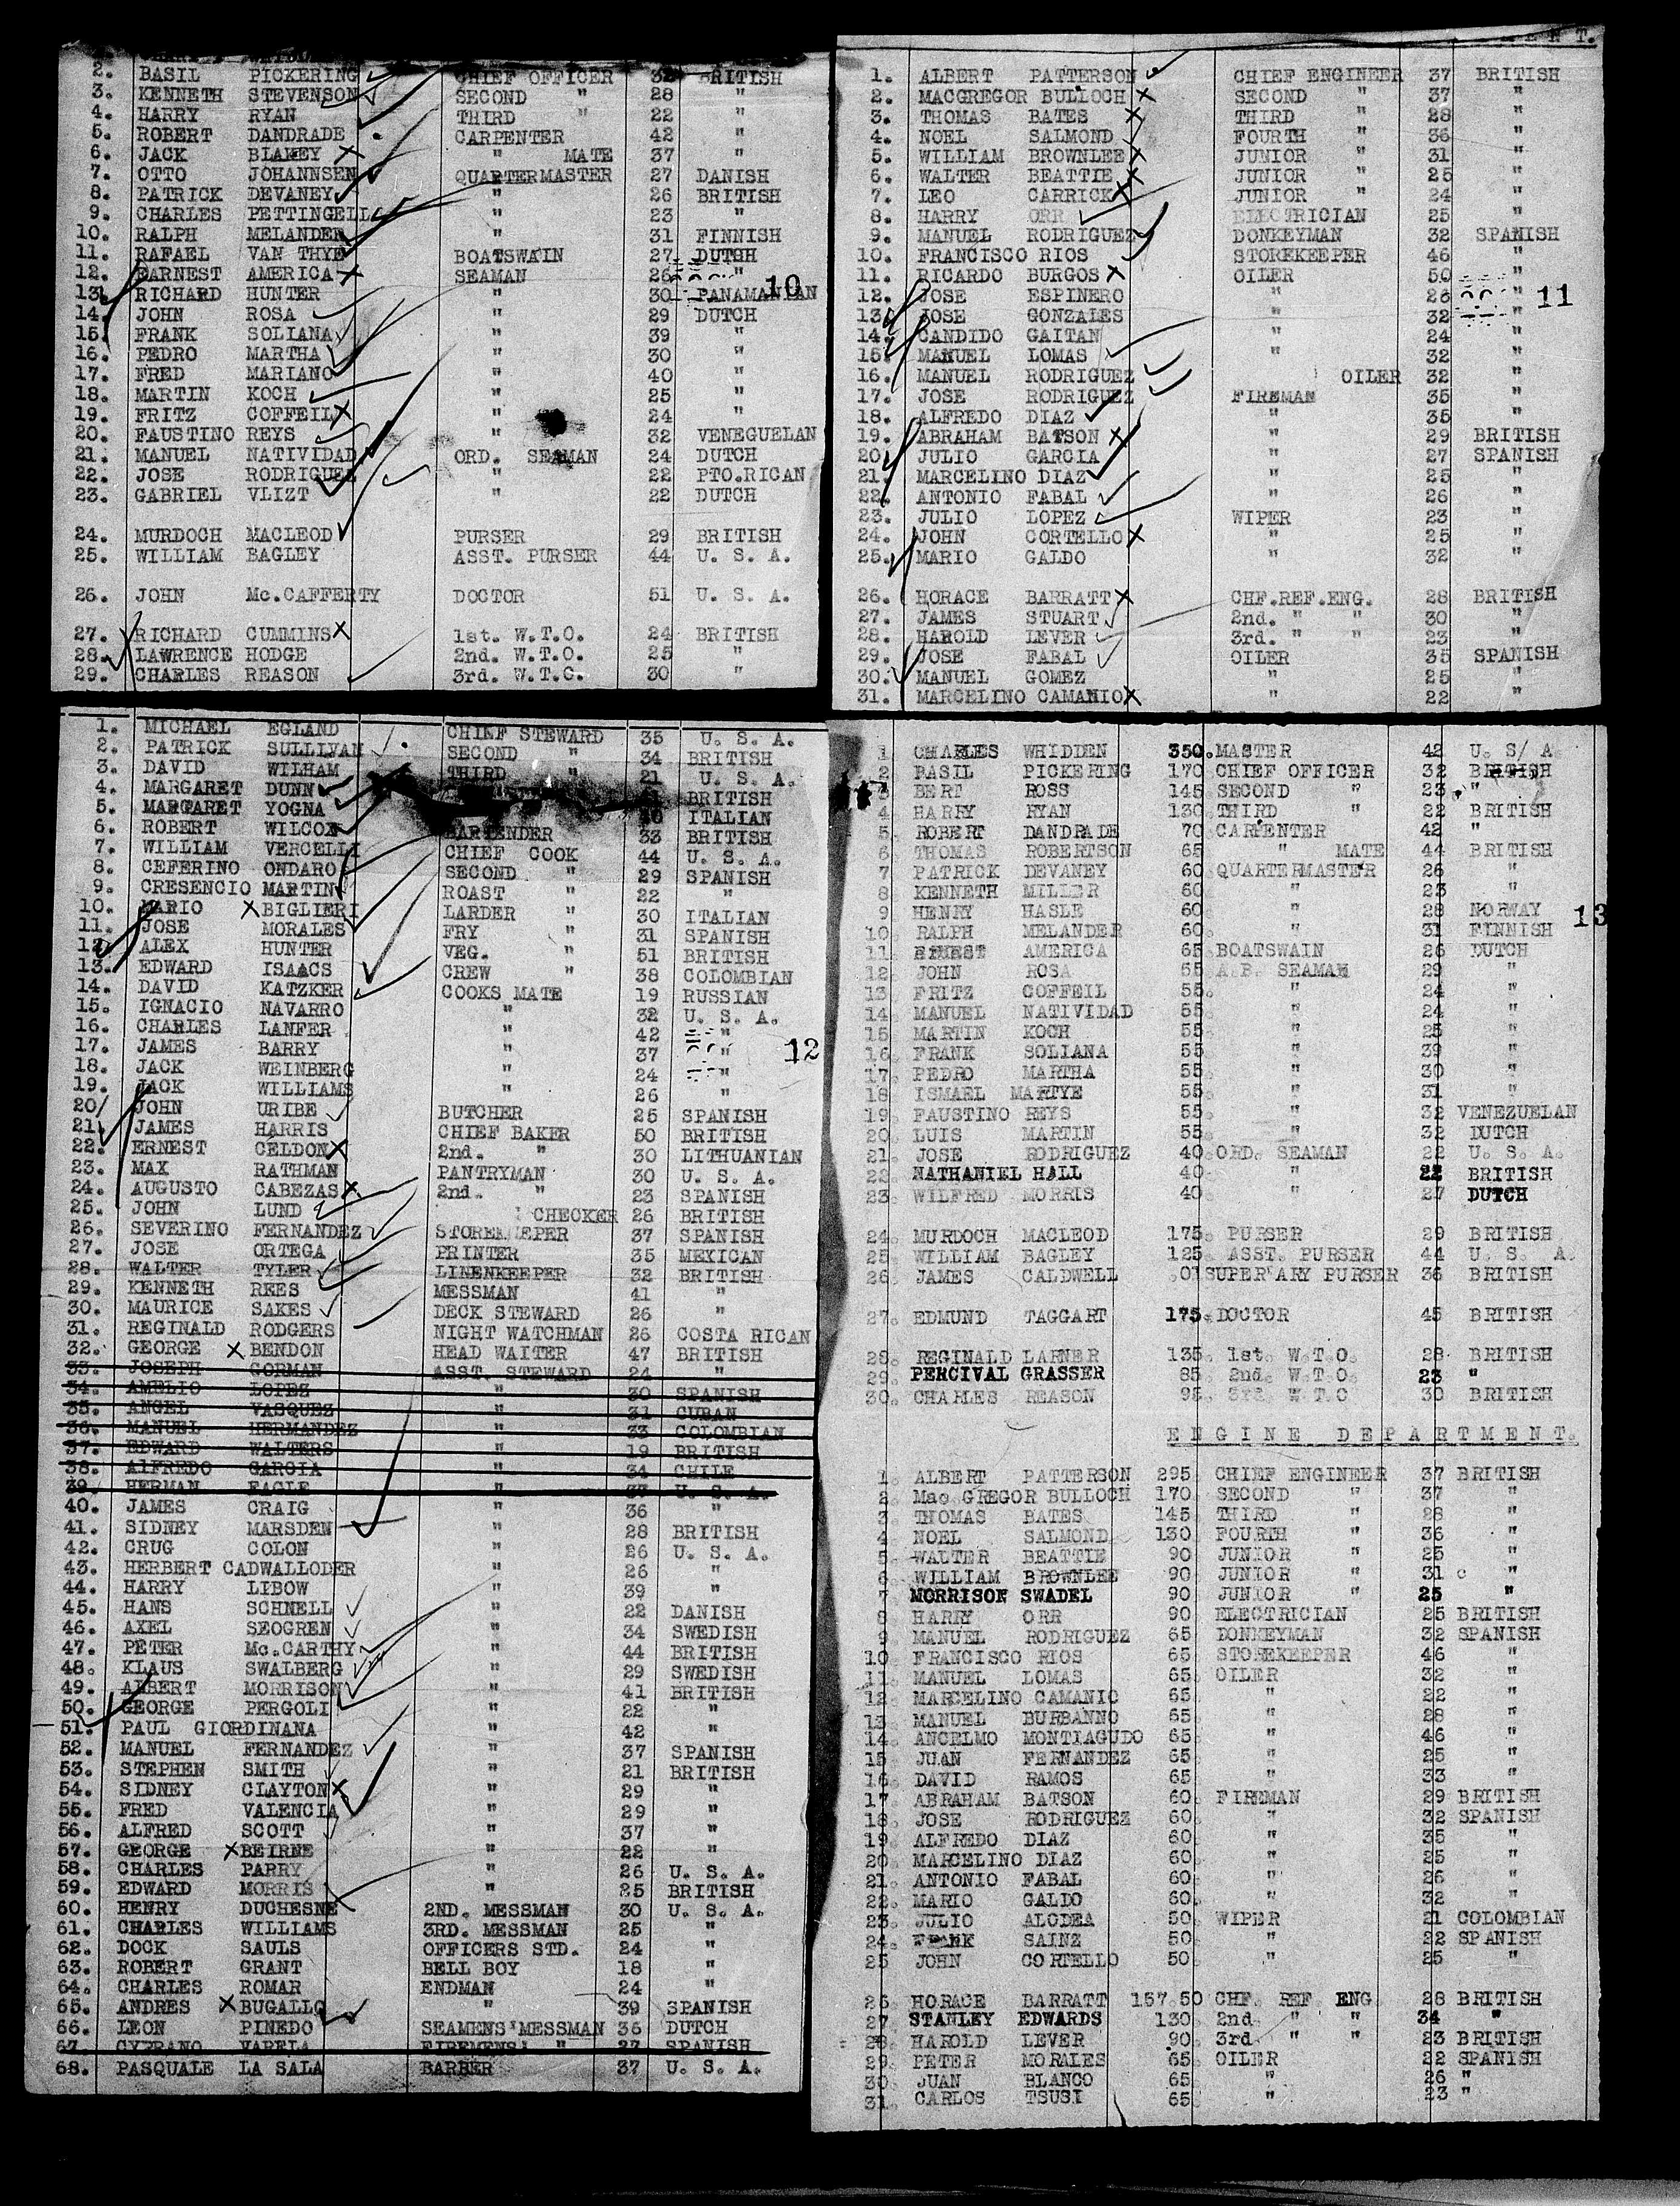 2. BASIL PICKERING CHIEF OFFICER 32 BRITISH
3. KENNETH STEVENSON SECOND " 28 "
4. HARRY RYAN THIRD " 22 "
5. ROBERT DANDRADE CARPENTER 42 "
6. JACK BLAKEY " MATE 37 "
7. OTTO JOHANNSEN QUARTERMASTER 27 DANISH
8. PATRICK DEVANEY " 26 BRITISH
9. CHARLES PETTINGELL " 23 "
10. RALPH MELANDER " 31 FINNISH
11. RAFAEL VAN THYE BOATSWAIN 27 DUTCH
12. EARNEST AMERICA SEAMAN 26 "
10
13. RICHARD HUNTER " 30 PANAMANIAN
14. JOHN ROSA " 29 DUTCH
15. FRANK SOLIANA " 39 "
16. PEDRO MARTHA " 30 "
17. FRED MARIANO " 40 "
18. MARTIN KOCH " 25 "
19. FRITZ COFFEIL " 24 "
20. FAUSTINO REYS " 32 VENEGUELAN
21. MANUEL NATIVIDAD ORD. SEAMAN 24 DUTCH
22. JOSE RODRIGUEZ " 22 PTO.RICAN
23. GABRIEL VLIZT " 22 DUTCH
24. MURDOCH MACLEOD PURSER 29 BRITISH
25. WILLIAM BAGLEY ASST. PURSER 44 U. S. A.
26. JOHN Mc.CAFFERTY DOCTOR 51 U. S. A.
27. RICHARD CUMMINS 1st. W.T.O. 24 BRITISH
28. LAWRENCE HODGE 2nd. W.T.O. 25 "
29. CHARLES REASON 3rd. W.T.O. 30 "
1. ALBERT PATTERSON CHIEF ENGINEER 37 BRITISH
2. MACGREGOR BULLOCH SECOND " 37 "
3. THOMAS BATES THIRD " 28 "
4. NOEL SALMOND FOURTH " 36 "
5. WILLIAM BROWNLEE JUNIOR " 31 "
6. WALTER BEATTIE JUNIOR " 25 "
7. LEO CARRICK JUNIOR " 24 "
8. HARRY ORR ELECTRICIAN 25 "
9. MANUEL RODRIGUEZ DONKEYMAN 32 SPANISH
10. FRANCISCO RIOS STOREKEEPER 46 "
11. RICARDO BURGOS OILER 50 "
12. JOSE ESPINERO " 26 "
11
13. JOSE GONZALES " 32 "
14. CANDIDO GAITAN " 24 "
15. MANUEL LOMAS " 32 "
16. MANUEL RODRIGUEZ OILER 32 "
17. JOSE RODRIGUEZ FIREMAN 35 "
18. ALFREDO DIAZ " 35 "
19. ABRAHAM BATSON " 29 BRITISH
20. JULIO GARCIA " 27 SPANISH
21. MARCELINO DIAZ " 25 "
22. ANTONIO FABAL " 26 "
23. JULIO LOPEZ WIPER 23 "
24. JOHN CORTELLO " 25 "
25. MARIO GALDO " 32 "
26. HORACE BARRATT CHF.REF.ENG. 28 BRITISH
27. JAMES STUART 2nd. " " 30 "
28. HAROLD LEVER 3rd. " " 23 "
29. JOSE FABAL OILER 35 SPANISH
30. MANUEL GOMEZ " 25 "
31. MARCELINO CAMANIO " 22 "
1. MICHAEL EGLAND CHIEF STEWARD 35 U. S. A.
2. PATRICK SULLIVAN SECOND " 34 BRITISH
3. DAVID WILHAM THIRD " 21 U. S. A.
4. MARGARET DUNN BRITISH
5. MARGARET YOGNA ITALIAN
6. ROBERT WILCOX BARTENDER 33 BRITISH
7. WILLIAM VERCELLI CHIEF COOK 44 U. S. A.
8. CEFERINO ONDARO SECOND " 29 SPANISH
9. CRESENCIO MARTIN ROAST " 22 "
10. MARIO BIGLIERI LARDER " 30 ITALIAN
11. JOSE MORALES FRY " 31 SPANISH
12. ALEX HUNTER VEG. " 51 BRITISH
13. EDWARD ISAACS CREW " 38 COLOMBIAN
14. DAVID KATZKER COOKS MATE 19 RUSSIAN
15. IGNACIO NAVARRO " 32 U. S. A.
16. CHARLES LANFER " 42 "
17. JAMES BARRY " 37 "
12
18. JACK WEINBERG " 24 "
19. JACK WILLIAMS " 26 "
20/ JOHN URIBE BUTCHER 25 SPANISH
21. JAMES HARRIS CHIEF BAKER 50 BRITISH
22. ERNEST CELDON 2nd. " 30 LITHUANIAN
23. MAX RATHMAN PANTRYMAN 30 U. S. A.
24. AUGUSTO CABEZAS 2nd. " 23 SPANISH
25. JOHN LUND CHECKER 26 BRITISH
26. SEVERINO FERNANDEZ STOREKEEPER 37 SPANISH
27. JOSE ORTEGA PRINTER 35 MEXICAN
28. WALTER TYLER LINENKEEPER 32 BRITISH
29. KENNETH REES MESSMAN 41 "
30. MAURICE SAKES DECK STEWARD 26 "
31. REGINALD RODGERS NIGHT WATCHMAN 26 COSTA RICAN
32. GEORGE BENDON HEAD WAITER 47 BRITISH
33. JOSEPH GORMAN ASST. STEWARD 24 "
34. AMELIO LOPEZ " 30 SPANISH
35. ANGEL VASQUEZ " 31 CUBAN
36. MANUEL HERNANDEZ " 33 COLOMBIAN
37. EDWARD WALTERS " 19 BRITISH
38. AlFREDO GARCIA " 34 CHILE
39. HERMAN EAGLE " 37 U. S. A.
40. JAMES CRAIG " 36 "
41. SIDNEY MARSDEN " 28 BRITISH
42. CRUG COLON " 26 U. S. A.
43. HERBERT CADWALLODER " 26 "
44. HARRY LIBOW " 39 "
45. HANS SCHNELL " 22 DANISH
46. AXEL SEOGREN " 34 SWEDISH
47. PETER Mc.CARTHY " 44 BRITISH
48. KLAUS SWALBERG " 29 SWEDISH
49. ALBERT MORRISON " 41 BRITISH
50. GEORGE PERGOLI " 22 "
51. PAUL GIORDINANA " 42 "
52. MANUEL FERNANDEZ " 37 SPANISH
53. STEPHEN SMITH " 21 BRITISH
54. SIDNEY CLAYTON " 29 "
55. FRED VALENCIA " 29 "
56. ALFRED SCOTT " 37 "
57. GEORGE BEIRNE " 22 "
58. CHARLES PARRY " 26 U. S. A.
59. EDWARD MORRIS " 25 BRITISH
60. HENRY DUCHESNE 2ND. MESSMAN 30 U. S. A.
61. CHARLES WILLIAMS 3RD. MESSMAN 25 "
62. DOCK SAULS OFFICERS STD. 24 "
63. ROBERT GRANT BELL BOY 18 "
64. CHARLES ROMAR ENDMAN 24 "
65. ANDRES BUGALLO " 39 SPANISH
66. LEON PINEDO SEAMENS'MESSMAN 36 DUTCH
67. CYPRANO VARELA FIREMENS' " 27 SPANISH
68. PASQUALE LA SALA BARBER 37 U. S. A.
1 CHARLES WHIDDEN 350. MASTER 42 U. S/ A.
2 BASIL PICKERING 170 CHIEF OFFICER 32 BRITISH
3 BERT ROSS 145 SECOND " 23 "
4 HARRY RYAN 130 THIRD " 22 BRITISH
5. ROBERT DANDRADE 70 CARPENTER 42 "
6 THOMAS ROBERTSON 65 " MATE 44 BRITISH
7 PATRICK DEVANEY 60 QUARTERMASTER 26 "
8 KENNETH MILLER 60 " 23 "
9 HENRY HASLE 60 " 28 NORWAY
13
10. RALPH MELANDER 60. " 31 FINNISH
11 ERNEST AMERICA 65 BOATSWAIN 26 DUTCH
12 JOHN ROSA 55 A.B. SEAMAN 29 "
13 FRITZ COFFEIL 55. " 24 "
14 MANUEL NATIVIDAD 55. " 24 "
15 MARTIN KOCH 55. " 25 "
16. FRANK SOLIANA 55 " 39 "
17. PEDRO MARTHA 55. " 30 "
18 ISMAEL MARTYE 55. " 31 "
19. FAUSTINO REYS 55. " 32 VENEZUELAN
20. LUIS MARTIN 55. " 32 DUTCH
21. JOSE RODRIGUEZ 40. ORD. SEAMAN 22 U. S. A.
22 NATHANIEL HALL 40 " 22 BRITISH
23. WILFRED MORRIS 40 " 27 DUTCH
24. MURDOCH MACLEOD 175. PURSER 29 BRITISH
25 WILLIAM BAGLEY 125. ASST. PURSER 44 U. S. A.
26. JAMES CALDWELL .01 SUPER'ARY PURSER 36 BRITISH
27. EDMUND TAGGART 175. DOCTOR 45 BRITISH
28. REGINALD LARNER 135. 1st. W.T.O. 28 BRITISH
29. PERCIVAL GRASSER 85. 2nd. W.T.O. 23 "
30. CHARLES REASON 95. 3rd. W.T.O 30 BRITISH
ENGINE DEPARTMENT.
1. ALBERT PATTERSON 295. CHIEF ENGINEER 37 BRITISH
2. Mac GREGOR BULLOCH 170. SECOND " 37 "
3. THOMAS BATES 145. THIRD " 28 "
4. NOEL SALMOND 130 FOURTH " 36 "
5. WALTER BEATTIE 90 JUNIOR " 25 "
6. WILLIAM BROWNLEE 90. JUNIOR " 31 "
7 MORRISON SWADEL 90 JUNIOR " 25 "
8 HARRY ORR 90 ELECTRICIAN 25 BRITISH
9 MANUEL RODRIGUEZ 65 DONKEYMAN 32 SPANISH
10 FRANCISCO RIOS 65 STOREKEEPER 46 "
11. MANUEL LOMAS 65. OILER 32 "
12. MARCELINO CAMANIO 65. " 22 "
13. MANUEL BURBANNO 65. " 28 "
14. ANCELMO MONTIAGUDO 65. " 46 "
15 JUAN FERNANDEZ 65. " 25 "
16. DAVID RAMOS 65. " 33 "
17. ABRAHAM BATSON 60. FIREMAN 29 BRITISH
18. JOSE RODRIGUEZ 60. " 32 SPANISH
19. ALFREDO DIAZ 60. " 35 "
20. MARCELINO DIAZ 60. " 25 "
21. ANTONIO FABAL 60. " 26 "
22. MARIO GALDO 60. " 32 "
23. JULIO ALODEA 50. WIPER 21 COLOMBIAN
24. FRANK SAINZ 50. " 22 SPANISH
25 JOHN CORTELLO 50. " 25 "
26. HORACE BARRATT 157.50 CHF. REF. ENG. 28 BRITISH
27. STANLEY EDWARDS 130. 2nd. " " 34 "
28. HAROLD LEVER 90. 3rd. " " 23 BRITISH
29. PETER MORALES 65. OILER 22 SPANISH
30. JUAN BLANCO 65. " 26 "
31. CARLOS TSUSI 65. " 23 "